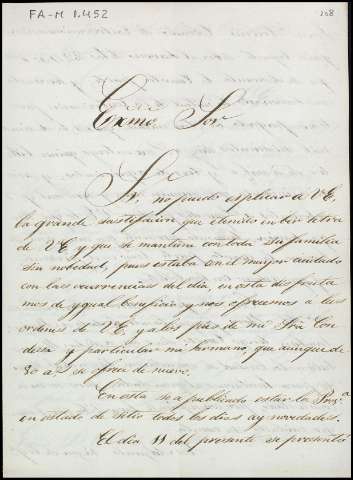 FA-M 1.452
208
Exmo. Sor.
Sr. no puedo esplicar a V.E,
la grande sastifacion que etenido en bir letra
de V E y que se mantiene con toda su familia
sin nobedad, pues estaba con el mayor cuidado
con las ocurrencias del dia, en esta disfruta
mos de ygual beneficio y nos ofrecemos a las
ordenes de V E, y a los pies de mi Sra Con
desa y particular mi hermano, que aunque de
80 as se ofrece de nuevo.
En esta se a publicado estar la Prova
en estado de sitio todos los dias ay novedades.
El dia 11 del presente se presentó